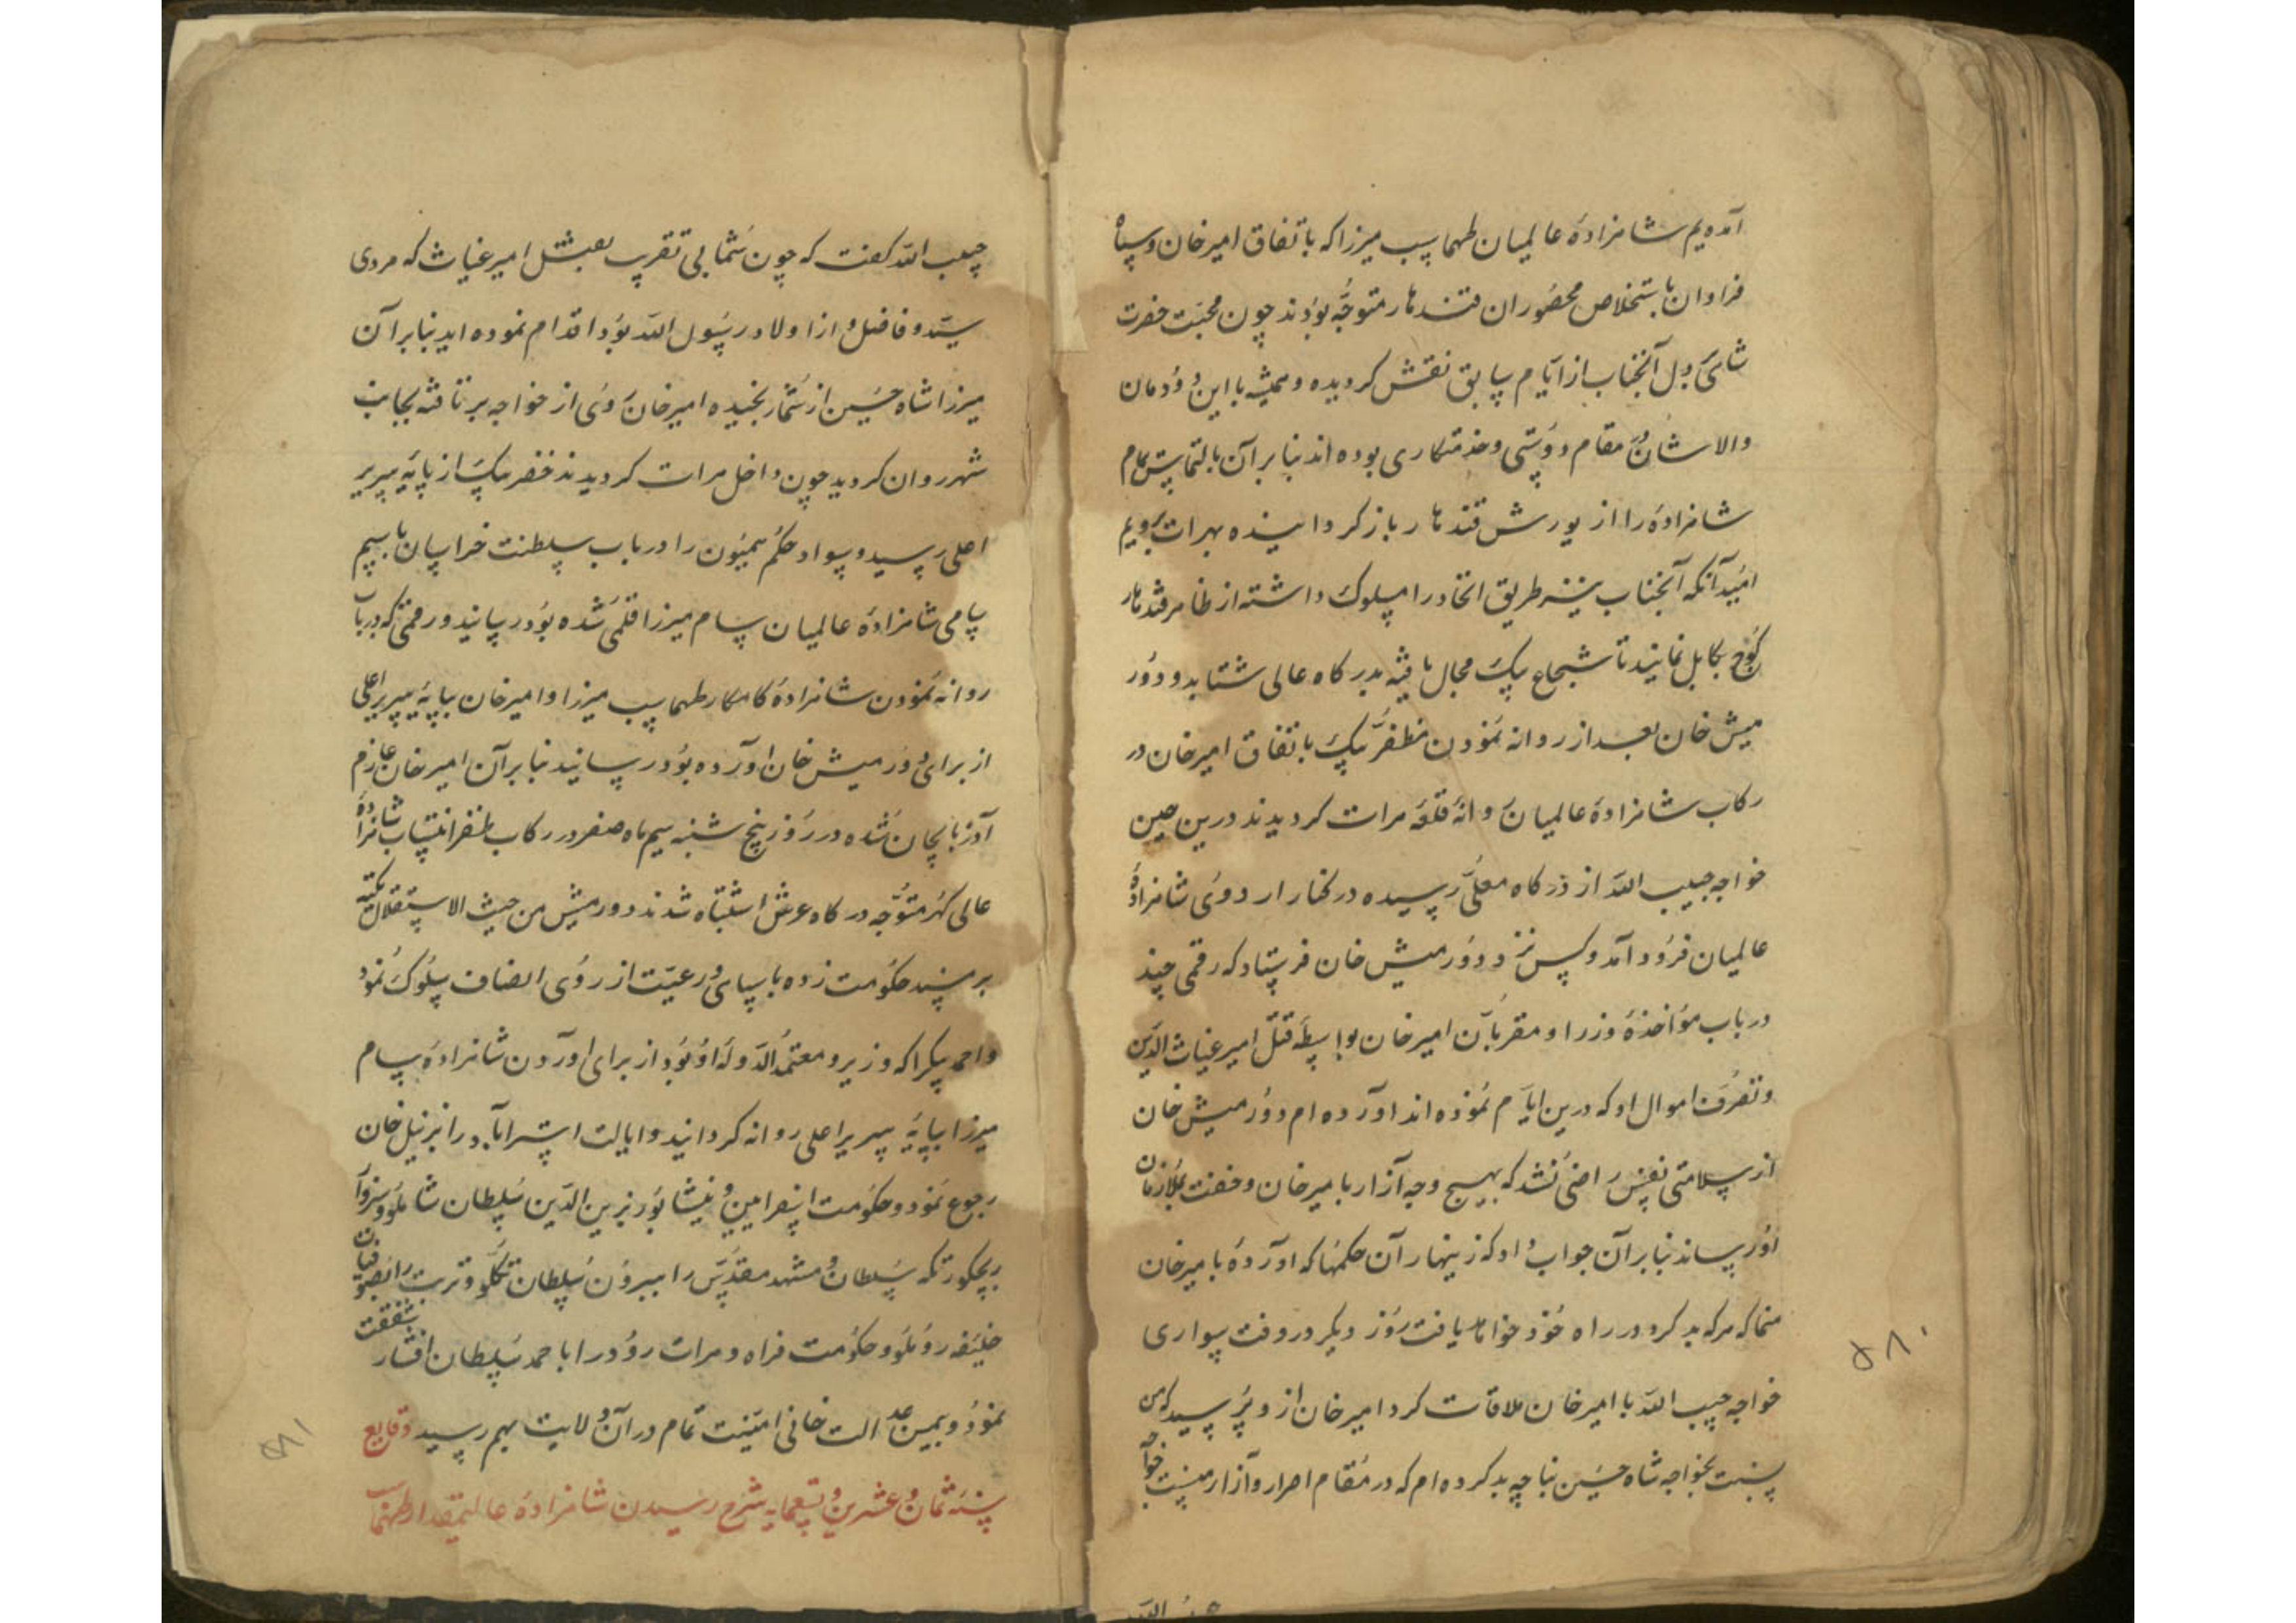 آمده‌ایم شاهزادهٔ عالمیان طهماسب میرزا که باتفاق امیرخان و سپاه
فراوان باستخلاص محصوران قندهار متوجه بودند چون محبت حضرت
شاهی در دل آنجناب از ایام سابق نقش کردیده و همیشه با این دودمان
والاشان در مقام دوستی و خدمتکاری بوده‌اند بنابر آن بالتماس تمام
شاهزاده را از یورش قندهار بازکردانیده بهرات بردیم
امید آنکه آنجناب نیز طریق اتحاد را مسلوک داشته از ظاهر قندهار
کوچ بکابل نمایند تا شجاع بیک مجال یافته بدرکاه عالی شتابد و دور
میش خان بعد از روانه نمودن مظفر بیک باتفاق امیرخان در
رکاب شاهزادهٔ عالمیان روانهٔ قلعهٔ هرات کردیدند درین حین
خواجه حبیب الله از درکاه معلی رسیده در کنار اردوی شاهزادهٔ
عالمیان فرود آمد و کس نزد دورمیش خان فرستاد که رقمی چند
در باب مؤاخذهٔ وزرا و مقربان امیرخان بواسطهٔ قتل امیر غیاث الدین
و تصرف اموال او که درین ایام نموده‌اند آورده‌ام دورمیش خان
از سلامتی نفس راضی نشد که بهیچ وجه آزار بامیرخان و خفت بملازمان
او رساند بنابر آن جواب داد که زینهار آن حکمها که آوردهٔ بامیرخان
منما که هرکه بد کرد در راه خود خواهد یافت روز دیکر در وقت سواری
خواجه حبیب الله با امیرخان ملاقات کرد امیرخان از و پرسید که من
نسبت بخواجه شاه حسین نیا چه بد کرده‌ام که در مقام اضرار و آزار منست خواجه
۵۸۰
حبیب الله کفت که چون شما بی تقریب بقتل امیر غیاث که مردی
سید و فاضل و از اولاد رسول الله بود اقدام نموده‌اید بنابر آن
میرزا شاه حسین از شما رنجیده امیرخان روی از خواجه برتافته بجانب
شهر روان کردید چون داخل هرات کردیدند خضر بیک از پایهٔ سریر
اعلی رسید و سواد حکم همیون را در باب سلطنت خراسان باسم
سامی شاهزادهٔ عالمیان سام میرزا قلمی شده بود رسانید و رقمی که در باب
روانه نمودن شاهزادهٔ کامکار طهماسب میرزا و امیرخان بپایهٔ سریر اعلی
از برای دورمیش خان آورده بود رسانید بنابر آن امیرخان عازم
آذربایجان شده در روز پنج شنبه سیم ماه صفر در رکاب ظفر انتساب شاهزادهٔ
عالی کهر متوجه درکاه عرش اشتباه شدند دورمیش من حیث الاستقلال تکیه
بر مسند حکومت زده با سپاهی و رعیت از روی انصاف سلوک نمود
و احمد بیک را که وزیر و معتمد الدوله او بود از برای آوردن شاهزاده سام
میرزا بپایهٔ سریر اعلی روانه کردانید و ایالت استراباد را بزینل خان
رجوع نمود و حکومت اسفراین و نیشابور بزین الدین سلطان شاملو و سبزوار
بچکورتکه سلطان و مشهد مقدس را ببرون سلطان تکلو و تربت را بصوفیان
خلیفه روملو و حکومت فراه و هرات رود را باحمد سلطان افشار شفقت
نمود و بمین عدالت خانی امنیت تمام در آن ولایت بهم رسید وقایع
سنه ثمان و عشرین و تسعمایه شرح رسیدن شاهزادهٔ عالیمقدار طهماسب